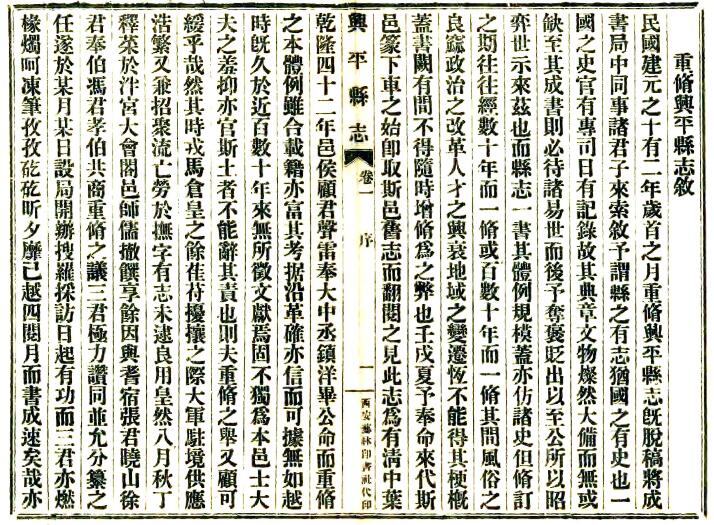 重脩興平縣志敘
民國建元之十有二年歲首之月重脩興平縣志旣脫稿將成
書局中同事諸君子來索敘予謂縣之有志猶國之有史也一
國之史官有專司日有記錄故其典章文物燦然大備而無或
缺至其成書則必待諸易世而後予奪褒貶出以至公所以昭
弈世示來茲也而縣志一書其體例規模蓋亦仿諸史但脩訂
之期往往經數十年而一脩或百數十年而一脩其間風俗之
良窳政治之改革人才之興衰地域之變遷恆不能得其梗槪
蓋書闕有間不得隨時增脩爲之弊也壬戌夏予奉命來代斯
邑篆下車之始卽取斯邑舊志而翻閱之見此志爲有淸中葉
興平縣志
卷一
序
一
西安藝林印書社代印
乾隆四十二年邑侯顧君聲雷奉大中丞鎮洋畢公命而重脩
之本體例雖合載籍亦富其考据沿革確亦信而可據無如越
時旣久於近百數十年來無所徵文獻焉固不獨爲本邑士大
夫之羞抑亦官斯土者不能辭其責也則夫重脩之舉又顧可
緩乎哉然其時戎馬倉皇之餘萑苻擾攘之際大軍駐境供應
浩繁又兼招聚流亡勞於撫字有志未逮良用皇然八月秋丁
釋菜於泮宮大會闔邑師儒撤饌享餘因與耆宿張君曉山徐
君奉伯馮君孝伯共商重脩之議三君極力讚同並允分纂之
任遂於某月某日設局開辦搜羅採訪日起有功而三君亦燃
椽燭呵凍筆孜孜矻矻昕夕靡已越四閱月而書成速矣哉亦